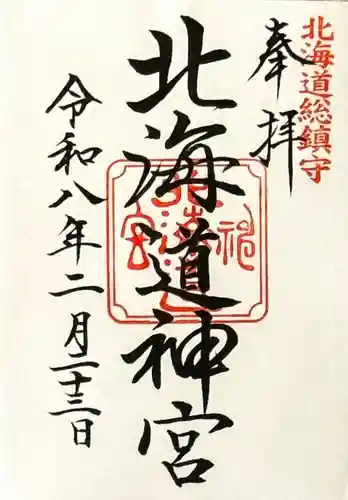 北海道総鎮守
奉拝
北海道神宮
令和八年二月二十三日